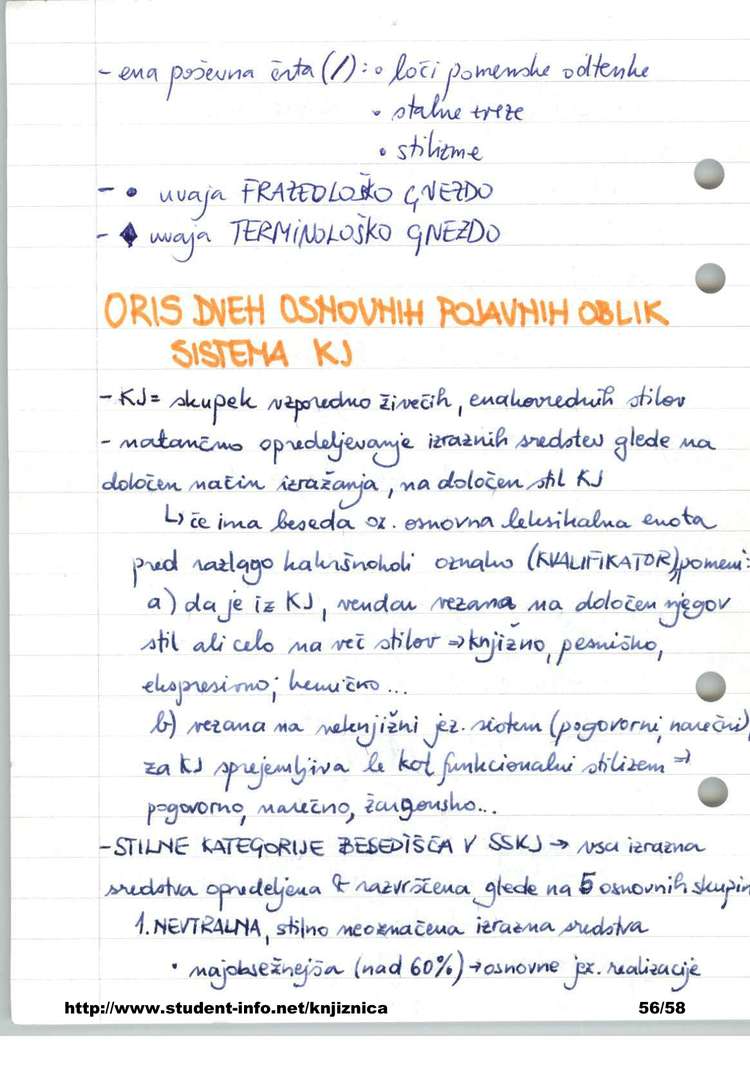 - ena poševna črta (/): • loči pomenske odtenke
• stalne zveze
• stilizme
- • uvaja FRAZEOLOŠKO GNEZDO
- ♦ uvaja TERMINOLOŠKO GNEZDO
ORIS DVEH OSNOVNIH POJAVNIH OBLIK
SISTEMA KJ
- KJ = skupek vzporedno živečih, enakovrednih stilov
- natančno opredeljevanje izraznih sredstev glede na
določen način izražanja, na določen stil KJ
↳ če ima beseda oz. osnovna leksikalna enota
pred razlago kakršnokoli oznako (KVALIFIKATOR), pomeni:
a) da je iz KJ, vendar vezana na določen njegov
stil ali celo na več stilov ⇒ knjižno, pesniško,
ekspresivno; kemično...
b) vezana na neknjižni jez. sistem (pogovorni, narečni),
za KJ sprejemljiva le kot funkcionalni stilizem ⇒
pogovorno, narečno, žargonsko...
- STILNE KATEGORIJE BESEDIŠČA V SSKJ → vsa izrazna
sredstva opredeljena & razvrščena glede na 5 osnovnih skupin
1. NEVTRALNA, stilno neoznačena izrazna sredstva
• najobsežnejša (nad 60%) → osnovne jez. realizacije
http://www.student-info.net/knjiznica 56/58